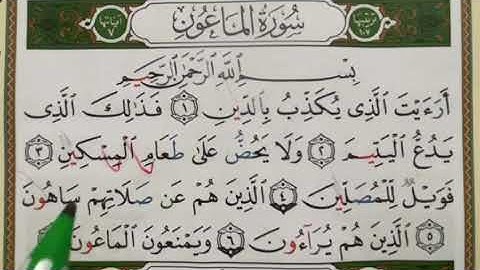 سُورَةُ المَاعُون
بِسْمِ اللَّهِ الرَّحْمَنِ الرَّحِيمِ
أَرَءَيْتَ الَّذِي يُكَذِّبُ بِالدِّينِ ١ فَذَٰلِكَ الَّذِي
يَدُعُّ الْيَتِيمَ ٢ وَلَا يَحُضُّ عَلَىٰ طَعَامِ الْمِسْكِينِ ٣
فَوَيْلٌ لِّلْمُصَلِّينَ ٤ الَّذِينَ هُمْ عَن صَلَاتِهِمْ سَاهُونَ
٥ الَّذِينَ هُمْ يُرَاءُونَ ٦ وَيَمْنَعُونَ الْمَاعُونَ